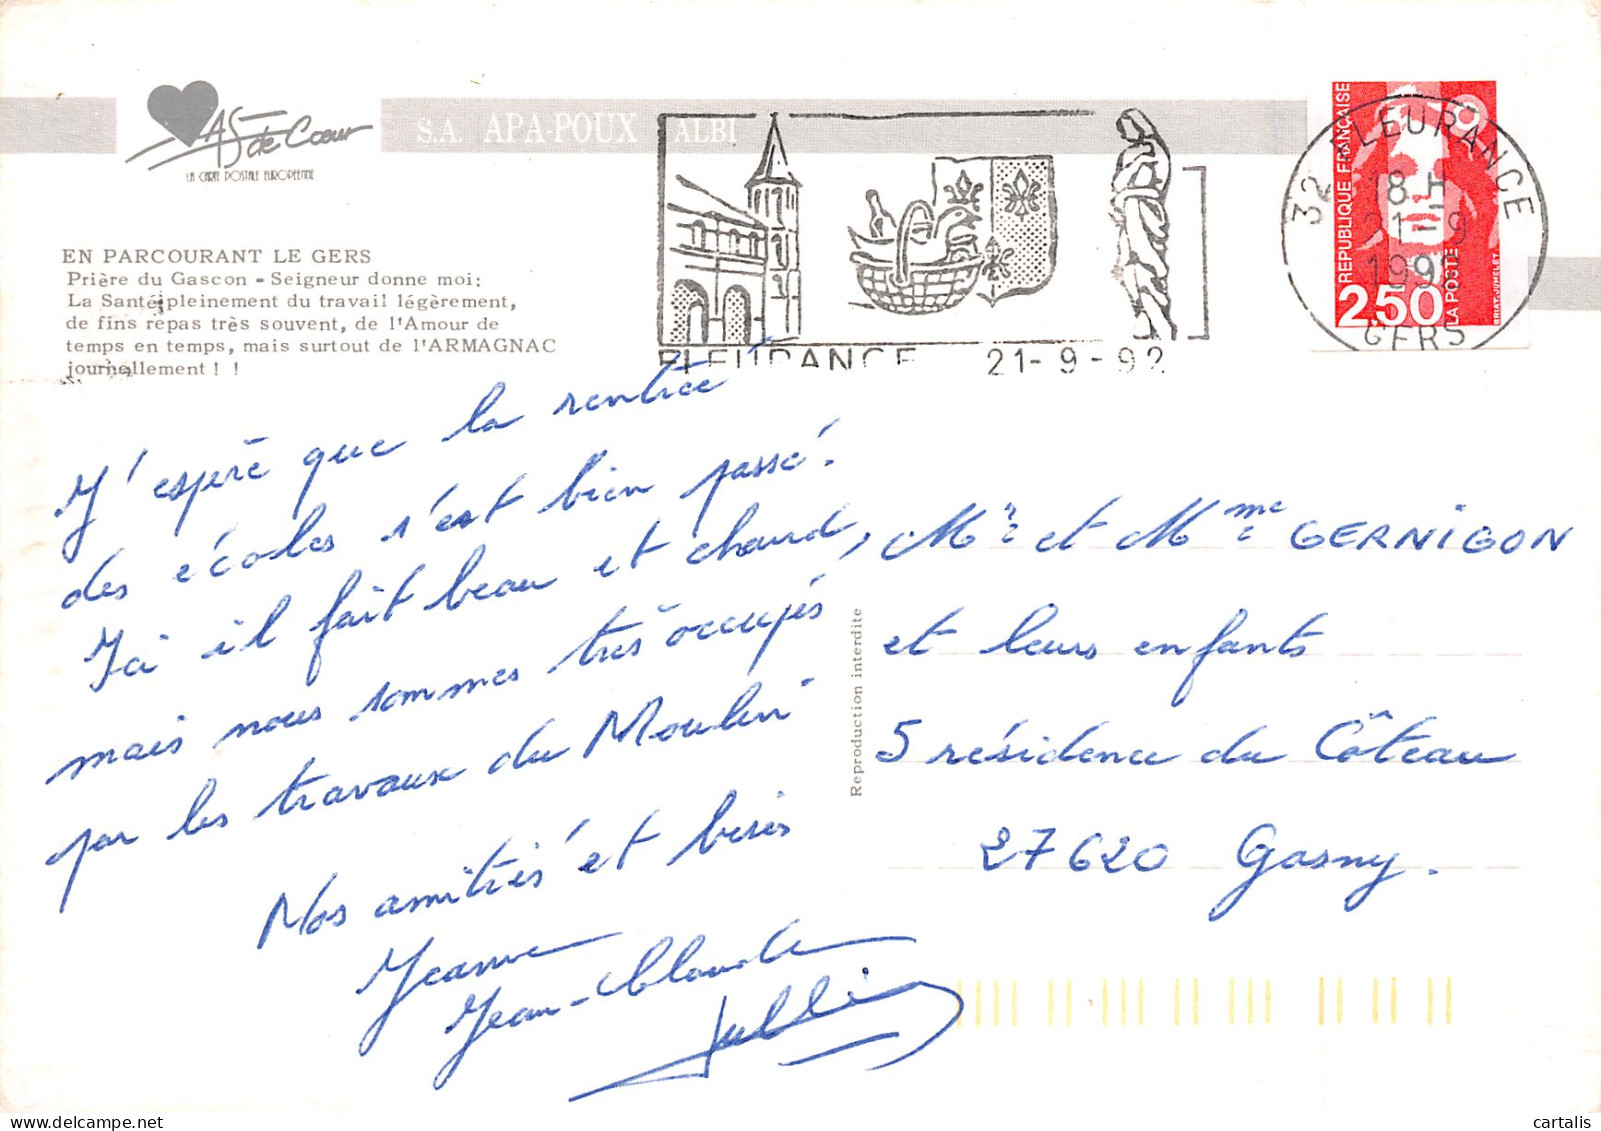 AS de Cœur
LA CARTE POSTALE EUROPEENNE
S.A. APA-POUX ALBI
EN PARCOURANT LE GERS
Prière du Gascon - Seigneur donne moi:
La Santé pleinement du travail légèrement,
de fins repas très souvent, de l'Amour de
temps en temps, mais surtout de l'ARMAGNAC
journellement ! !
FLEURANCE 21-9-92
32 FLEURANCE
18 H
21-9
1992
GERS
REPUBLIQUE FRANÇAISE
2,50
LA POSTE
BRIAT-JUMELET
J'espère que la rentrée
des écoles s'est bien passé.
Ici il fait beau et chaud,
mais nous sommes très occupés
par les travaux du Moulin
Nos amitiés et bises
Jeanne
Jean-Claude
Reproduction interdite
Mr et Mme GERNIGON
et leurs enfants
5 résidence du Côteau
27620 Gasny.
cartalis - delcampe.net